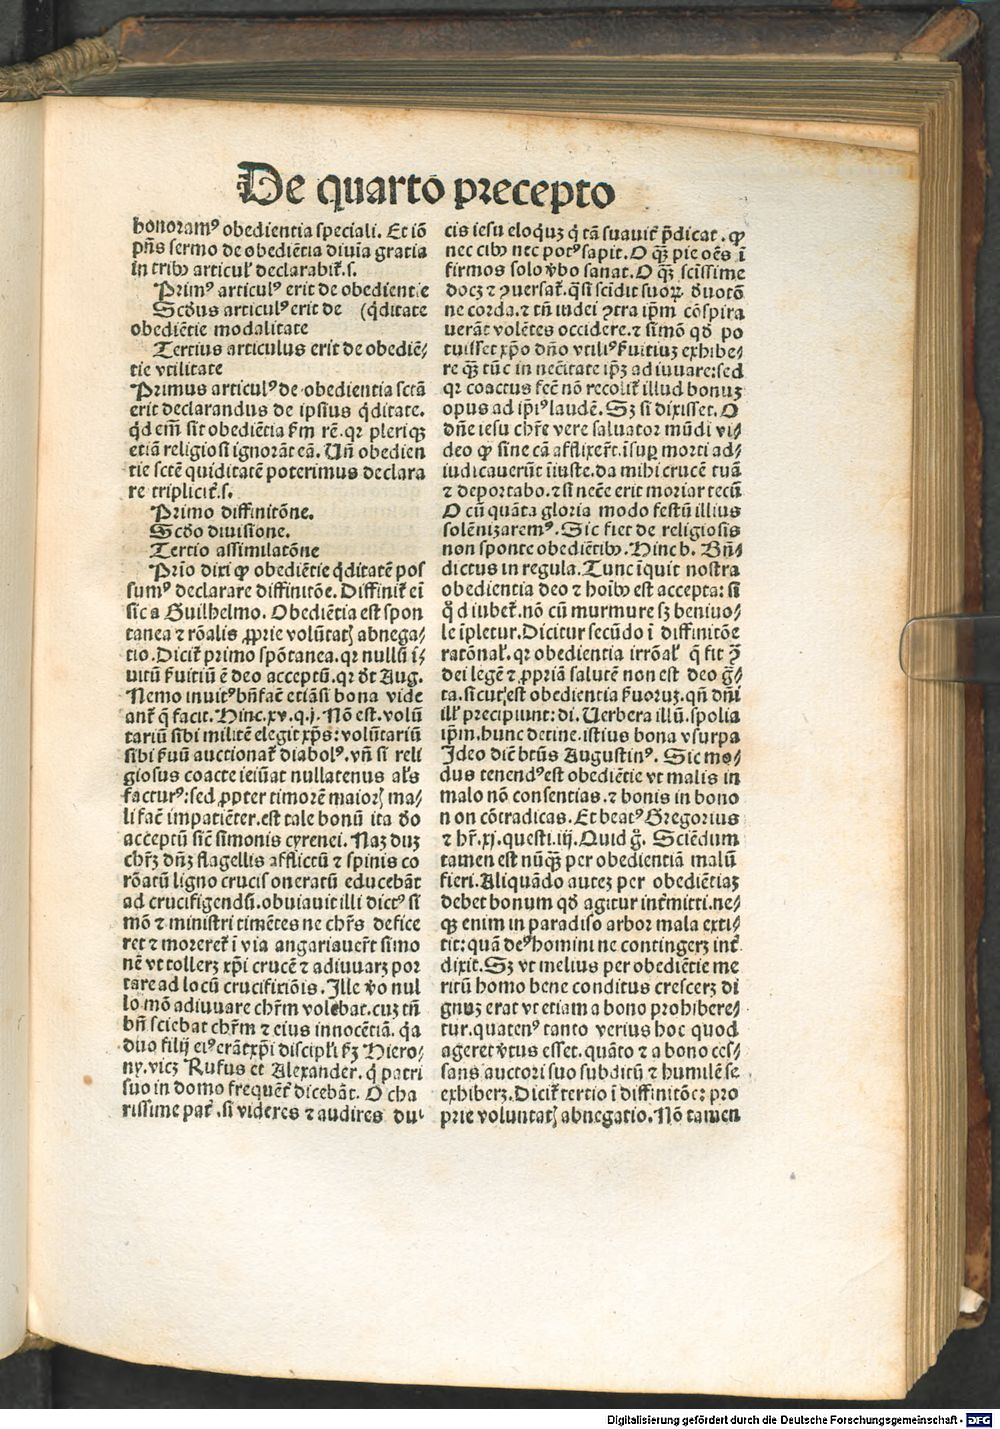 De quarto precepto
honoramꝰ obedientia speciali. Et iō
pn̄s sermo de obediētia diuīa gratia
in tribꝰ articul̉ declarabit᷑.s.
Primꝰ articulꝰ erit de obedientie
Scḋus articulꝰ erit de (q̇ditate
obediētie modalitate
Tertius articulus erit de obediē⸗
tie vtilitate
Primus articulꝰ de obedientia sctā
erit declarandus de ipsius q̇ditate.
q̇d em̄ sit obediētia ẜm rē.qr pleriqꝫ
etiā religiosi ignorāt eā. Un̄ obedien
tie sctē quiditatē poterimus declara
re triplicit᷑.s.
Primo diffinitōne.
Scḋo diuisione.
Tertio assimilatōne
Prīo dixi ꝙ obediētie q̇ditatē pos
sumꝰ declarare diffinitōe. Diffinit᷑ eī
sic a Guilhelmo. Obediētia est spon
tanea ⁊ rōalis ꝓprie volūtatꝭ abnega⸗
tio. Dicit᷑ primo spōtanea. qr nullū ī⸗
uitū ẜuitiū ē deo acceptū. qr ḋt Aug.
Nemo inuitꝰ bn̄facit etiāsi bona vide
ant᷑ q̄ facit. Hinc.xv.q.j. Nō est. volū
tariū sibi militē elegit xp̄s: volūtariū
sibi ẜuū auctionat᷑ diabolꝰ. vn̄ si reli
giosus coacte ieiūat nullatenus al̉s
facturꝰ: sed ꝓpter timorē maiorꝭ ma⸗
li facit impatiēter. est tale bonū ita ḋo
acceptū sic̄ simonis cyrenei. Naꝫ duꝫ
chr̄ꝫ dn̄ꝫ flagellis afflictū ⁊ spinis co
rōatū ligno crucis oneratū educebāt
ad crucifigendū. obuiauit illi dictꝰ si
mō ⁊ ministri timētes ne chr̄s defice
ret ⁊ moreret᷑ ī via angariauer̄t simo
nē vt tolleꝝ xp̄i crucē ⁊ adiuuaꝝ por
tare ad locū crucifixiōis. Ille v̄o nul
lo mō adiuuare chr̄m volebat. cuꝫ tn̄
bn̄ sciebat chr̄m ⁊ eius innocētiā. q̇a
duo filij eiꝰ erāt xp̄i discipl̉i ẜꝫ Hiero⸗
ny. vicꝫ Rufus et Alexander. q̇ patri
suo in domo frequēt᷑ dicebāt. O cha
rissime pat᷑. si videres ⁊ audires dul
cis iesu eloquꝫ q̇ tā suauit᷑ p̄dicat. ꝙ
nec cibꝰ nec potꝰ sapit. O qꝫ pie oēs ī
firmos solo v̄bo sanat. O qꝫ scissime
docꝫ ⁊ ꝯuersat᷑. q̄si scidit suoꝝ ḋuotō
ne corda. ⁊ tn̄ iudei ꝯtra ip̄m cōspira
uerāt volētes occidere. ⁊ simō qḋ po
tuisset xp̄o dn̄o vtilꝰ ẜuitiuꝫ exhibe⸗
re qꝫ tūc in necītate ip̄ꝫ adiuuare: sed
qr coactus fecit nō recolit᷑ illud bonuꝫ
opus ad ip̄iꝰ laudē. Sꝫ si dixisset. O
dn̄e iesu chr̄e vere saluator mūdi vi⸗
deo ꝙ sine cā afflixer̄t. īsuꝑ morti ad⸗
iudicauerūt īiuste. da mihi crucē tuā
⁊ deportabo. ⁊ si neccē erit moriar tecū
O cū quāta gloria modo festū illius
solēnizaremꝰ. Sic fiet de religiosis
non sponte obediētibꝰ. Hinc b. Bn̄⸗
dictus in regula. Tunc īquit nostra
obedientia deo ⁊ hoībꝰ est accepta: si
q̇d iubet᷑. nō cū murmure sꝫ beniuo⸗
le īpletur. Dicitur secūdo ī diffinitōe
ratōnal̉. qr obedientia irrōal̉ q̄ fit ꝯ̄
dei legē ⁊ ꝓpriā salutē non est deo g̃⸗
ta. sicut est obedientia ẜuoruꝫ. qn̄ dn̄i
ill̉ precipiunt: di. Verbera illū. spolia
ip̄m. hunc detine. istius bona vsurpa
Ideo dicit btūs Augustinꝰ. Sic mo⸗
dus tenendꝰ est obediētie vt malis in
malo nō consentias. ⁊ bonis in bono
non cōtradicas. Et beatꝰ Gregorius
⁊ hr̄. xj. questi. iij. Quid g̊. Sciēdum
tamen est nūqꝫ per obedientiā malū
fieri. Aliquādo auteꝫ per obediētiaꝫ
debet bonum qḋ agitur int᷑mitti. ne⸗
qꝫ enim in paradiso arbor mala exti⸗
tit: quā deꝰ homini ne contingeꝝ int᷑
dixit. Sꝫ vt melius per obediētie me
ritū homo bene conditus cresceꝝ di
gnuꝫ erat vt etiam a bono prohibere⸗
tur. quatenꝰ tanto verius hoc quod
ageret v̄tus esset. quāto ⁊ a bono ces⸗
sans auctori suo subditū ⁊ humilē se
exhibeꝝ. Dicit᷑ tertio ī diffinitōe: pro
prie voluntatꝭ abnegatio. Nō tamen
Digitalisierung gefördert durch die Deutsche Forschungsgemeinschaft - DFG